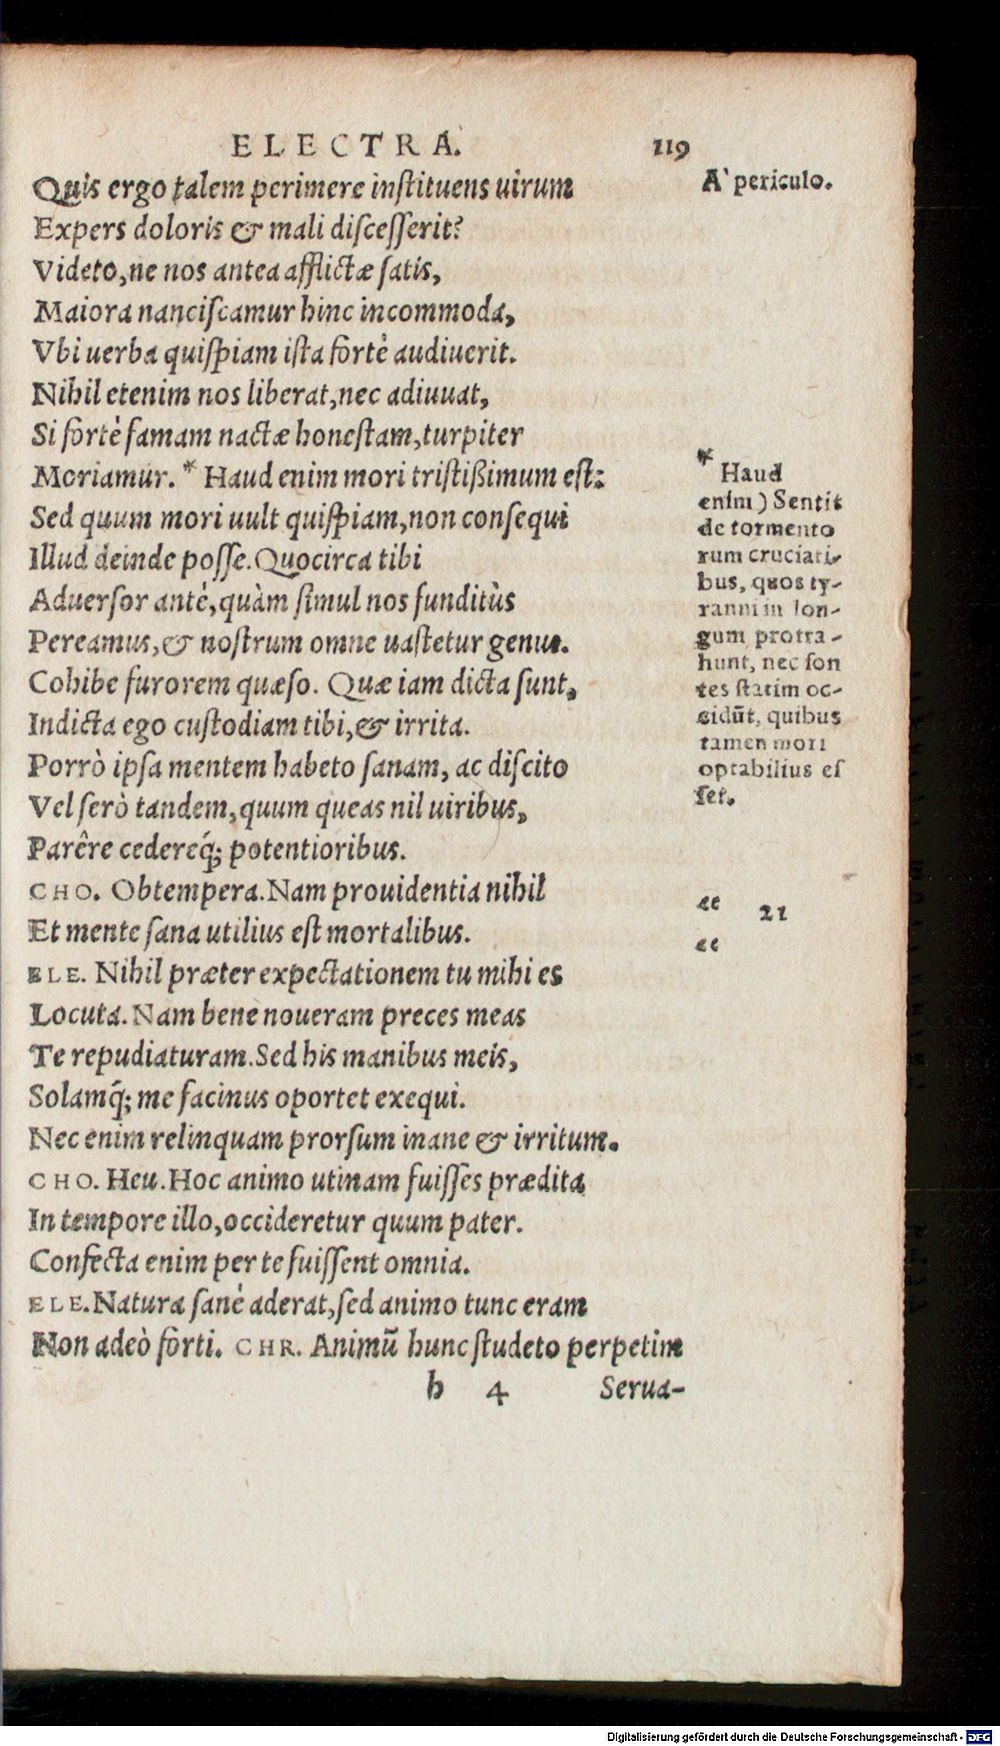 ELECTRA. 119
Quis ergo talem perimere inſtituens uirum
Expers doloris & mali diſceſſerit?
Videto, ne nos antea afflictæ ſatis,
Maiora nanciſcamur hinc incommoda,
Vbi uerba quiſpiam iſta fortè audiuerit.
Nihil etenim nos liberat, nec adiuuat,
Si fortè famam nactæ honeſtam, turpiter
Moriamur. * Haud enim mori triſtißimum est:
Sed quum mori uult quiſpiam, non conſequi
Illud deinde poſſe. Quocirca tibi
Aduerſor antè, quàm ſimul nos funditùs
Pereamus, & noſtrum omne uaſtetur genus.
Cohibe furorem quæſo. Quæ iam dicta ſunt,
Indicta ego cuſtodiam tibi, & irrita.
Porrò ipſa mentem habeto ſanam, ac diſcito
Vel ſerò tandem, quum queas nil uiribus,
Parêre cedereq́; potentioribus.
CHO. Obtempera. Nam prouidentia nihil
Et mente ſana utilius eſt mortalibus.
ELE. Nihil præter expectationem tu mihi es
Locuta. Nam bene noueram preces meas
Te repudiaturam. Sed his manibus meis,
Solamq́; me facinus oportet exequi.
Nec enim relinquam prorſum inane & irritum.
CHO. Heu. Hoc animo utinam fuiſſes prædita
In tempore illo, occideretur quum pater.
Confecta enim per te fuiſſent omnia.
ELE. Natura ſanè aderat, ſed animo tunc eram
Non adeò forti. CHR. Animũ hunc ſtudeto perpetim
h 4 Serua-
A` periculo.
* Haud
enim) Sentit
de tormento
rum cruciati-
bus, quos ty-
ranni in lon-
gum protra-
hunt, nec ſon
tes ſtatim oc-
cidũt, quibus
tamen mori
optabilius eſ
ſet.
“ 21
“
Digitalisierung gefördert durch die Deutsche Forschungsgemeinschaft - DFG